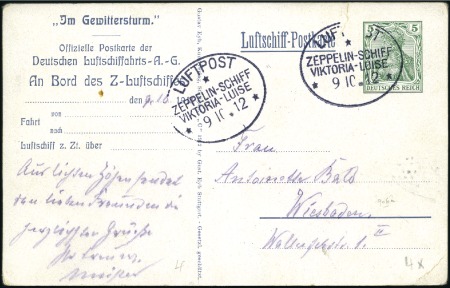 "Im Gewittersturm."
Offizielle Postkarte der
Deutschen Luftschiffahrts-A.-G.
An Bord des Z-Luftschiffes
den 9.10.
Fahrt
nach
Luftschiff z. Zt. über
Aus lichten Höhen sendet
den lieben Freunden die
herzlichsten Grüsse
Luftschiff-Postkarte
5
DEUTSCHES REICH
LUFTPOST
ZEPPELIN-SCHIFF
VIKTORIA-LUISE
9 10. 12
LUFTPOST
ZEPPELIN-SCHIFF
VIKTORIA-LUISE
9 10. 12
Frau
Antoinette
Wiesbaden
II